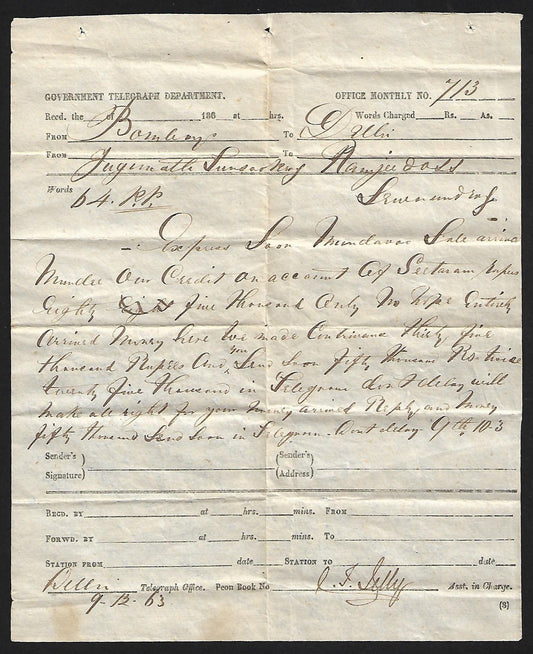 GOVERNMENT TELEGRAPH DEPARTMENT. OFFICE MONTHLY NO. 713
Recd. the of 186 at hrs. Words Charged Rs. As.
FROM Bombay To Delhi
FROM Jugernath To Ramjee doss
Words 64. R.P.
Express Soon Sale arrive
Mundee Our Credit on account Of Seetaram Rupees
Eighty five thousand Only No hope Entirely
arrived Money here We made Continuand thirty five
thousand Rupees and you Send Soon fifty thousand Rs
twenty five thousand in Telegram don't delay will
make all right for your Money arrived Reply and Money
fifty thousand Send soon in Telegram. Dont delay 9th 10-3
Sender's Signature } {Sender's Address}
RECD. BY at hrs. mins. FROM
FORWD. BY at hrs. mins. To
STATION FROM date STATION TO date
Delhi Telegraph Office. Peon Book No Asst. in Charge.
9-12-63
(8)